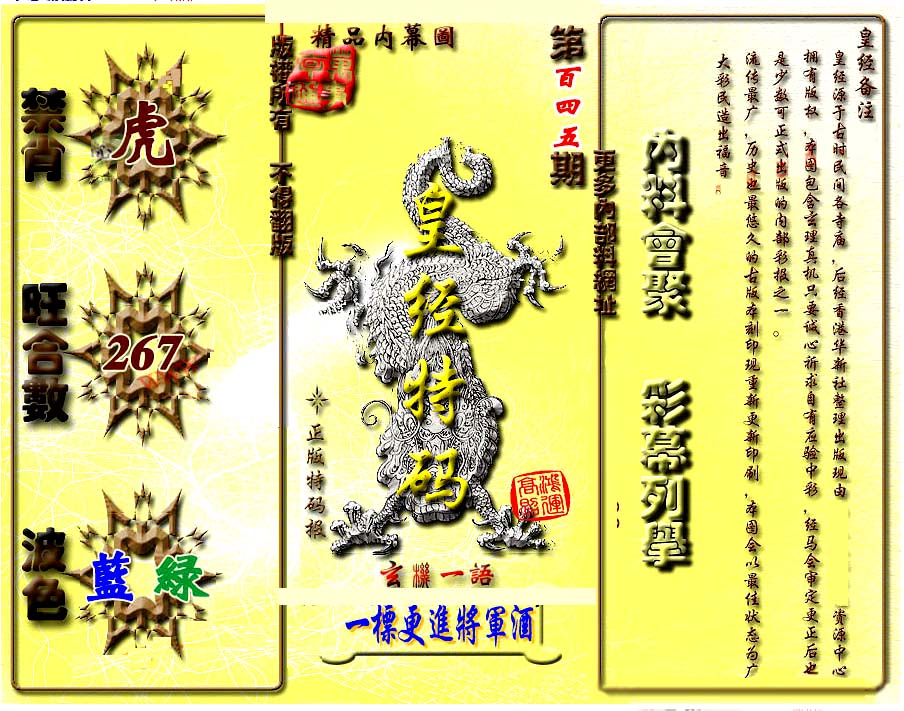 精品内幕圖
第百四五期
版權所有 不得翻版
更多内部料網址
皇经特码
正版特码报
鴻運高照
玄機一語
一標更進將軍酒
禁肖
虎
旺合數
267
波色
藍 緑
内料會聚
彩幕列舉
皇经备注
皇经源于古时民间各寺庙，后经香港华新社整理出版现由 资源中心
拥有版权，本图包含玄理真机只要诚心祈求自有应验中彩，经马会审定更正后也
是少数可正式出版的内部彩报之一。
流传最广，历史也最悠久的古版本刻印现重新更新印刷，本图会以最佳状态为广
大彩民造出福音